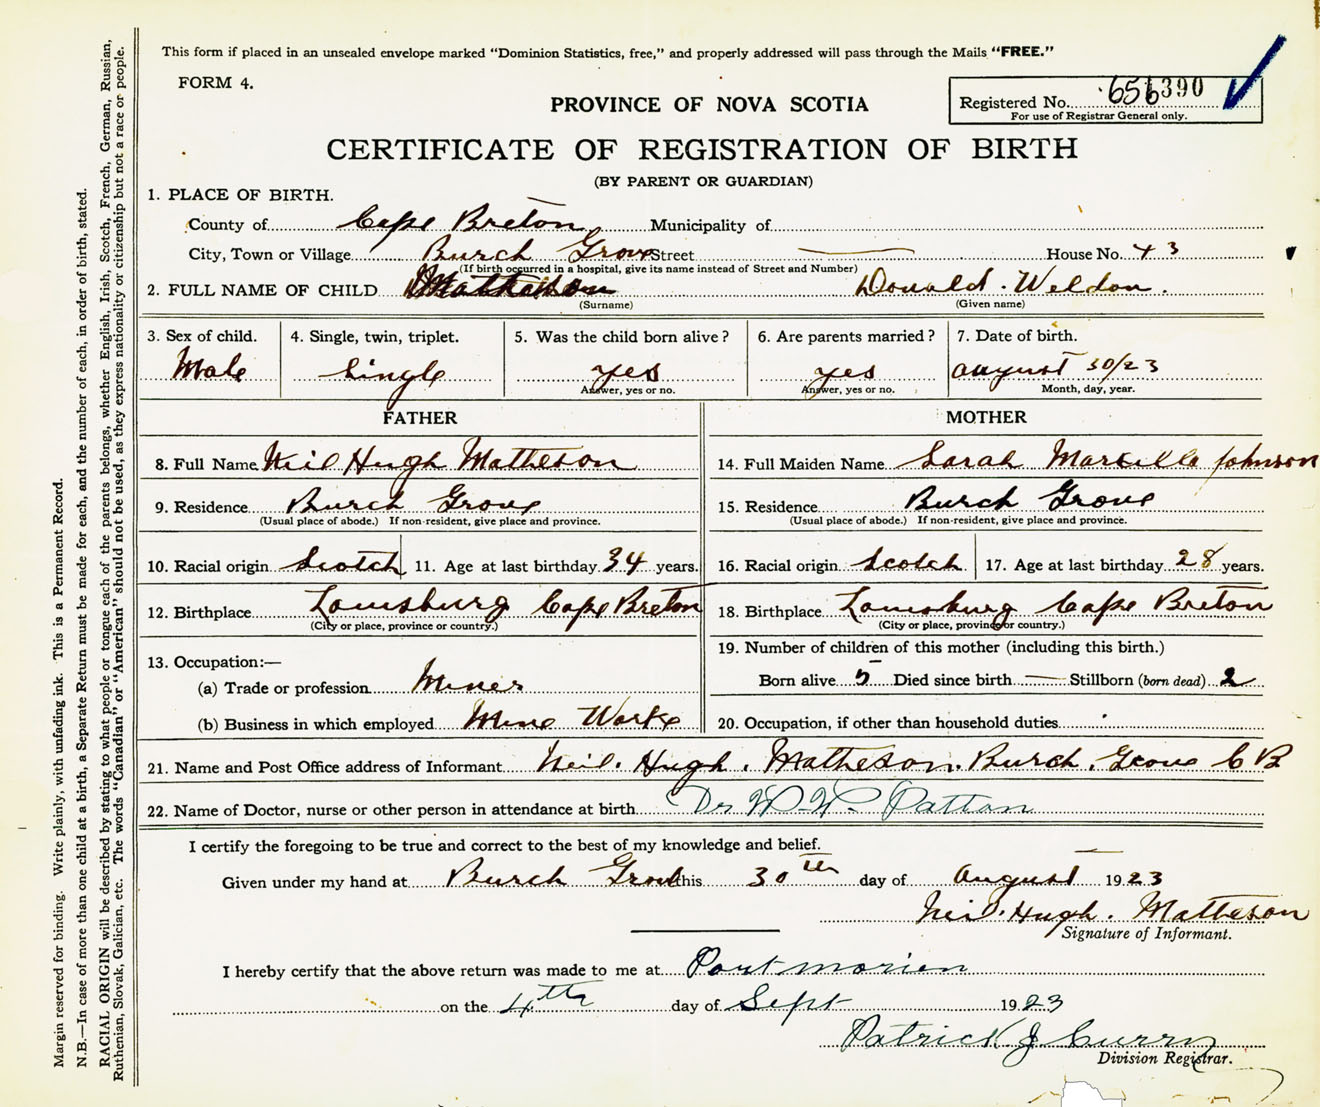 This form if placed in an unsealed envelope marked "Dominion Statistics, free," and properly addressed will pass through the Mails "FREE."
FORM 4.
PROVINCE OF NOVA SCOTIA
Registered No. 656390
For use of Registrar General only.
CERTIFICATE OF REGISTRATION OF BIRTH
(BY PARENT OR GUARDIAN)
1. PLACE OF BIRTH.
County of Cape Breton Municipality of
City, Town or Village Burch Grove Street — House No. 43
(If birth occurred in a hospital, give its name instead of Street and Number)
2. FULL NAME OF CHILD Matheson Donald. Weldon.
(Surname) (Given name)
3. Sex of child. 4. Single, twin, triplet. 5. Was the child born alive? 6. Are parents married? 7. Date of birth.
Male Single yes yes august 30/23
Answer, yes or no. Answer, yes or no. Month, day, year.
FATHER MOTHER
8. Full Name Neil Hugh Matheson 14. Full Maiden Name Sarah Marcella Johnson
9. Residence Burch Grove 15. Residence Burch Grove
(Usual place of abode.) If non-resident, give place and province. (Usual place of abode.) If non-resident, give place and province.
10. Racial origin Scotch 11. Age at last birthday 34 years. 16. Racial origin Scotch 17. Age at last birthday 28 years.
12. Birthplace Louisburg Cape Breton 18. Birthplace Louisburg Cape Breton
(City or place, province or country.) (City or place, province or country.)
13. Occupation:— 19. Number of children of this mother (including this birth.)
(a) Trade or profession Miner Born alive 5 Died since birth — Stillborn (born dead) 2
(b) Business in which employed Mine Works 20. Occupation, if other than household duties
21. Name and Post Office address of Informant Neil. Hugh. Matheson. Burch. Grove C B
22. Name of Doctor, nurse or other person in attendance at birth Dr W. W. Patton
I certify the foregoing to be true and correct to the best of my knowledge and belief.
Given under my hand at Burch Grove this 30th day of august 1923
Neil. Hugh. Matheson
Signature of Informant.
I hereby certify that the above return was made to me at Port morien
on the 4th day of Sept 1923
Patrick J Curry
Division Registrar.
Margin reserved for binding. Write plainly, with unfading ink. This is a Permanent Record.
N.B.—In case of more than one child at a birth, a Separate Return must be made for each, and the number of each, in order of birth, stated.
RACIAL ORIGIN will be described by stating to what people or tongue each of the parents belongs, whether English, Irish, Scotch, French, German, Russian,
Ruthenian, Slovak, Galician, etc. The words "Canadian" or "American" should not be used, as they express nationality or citizenship but not a race or people.